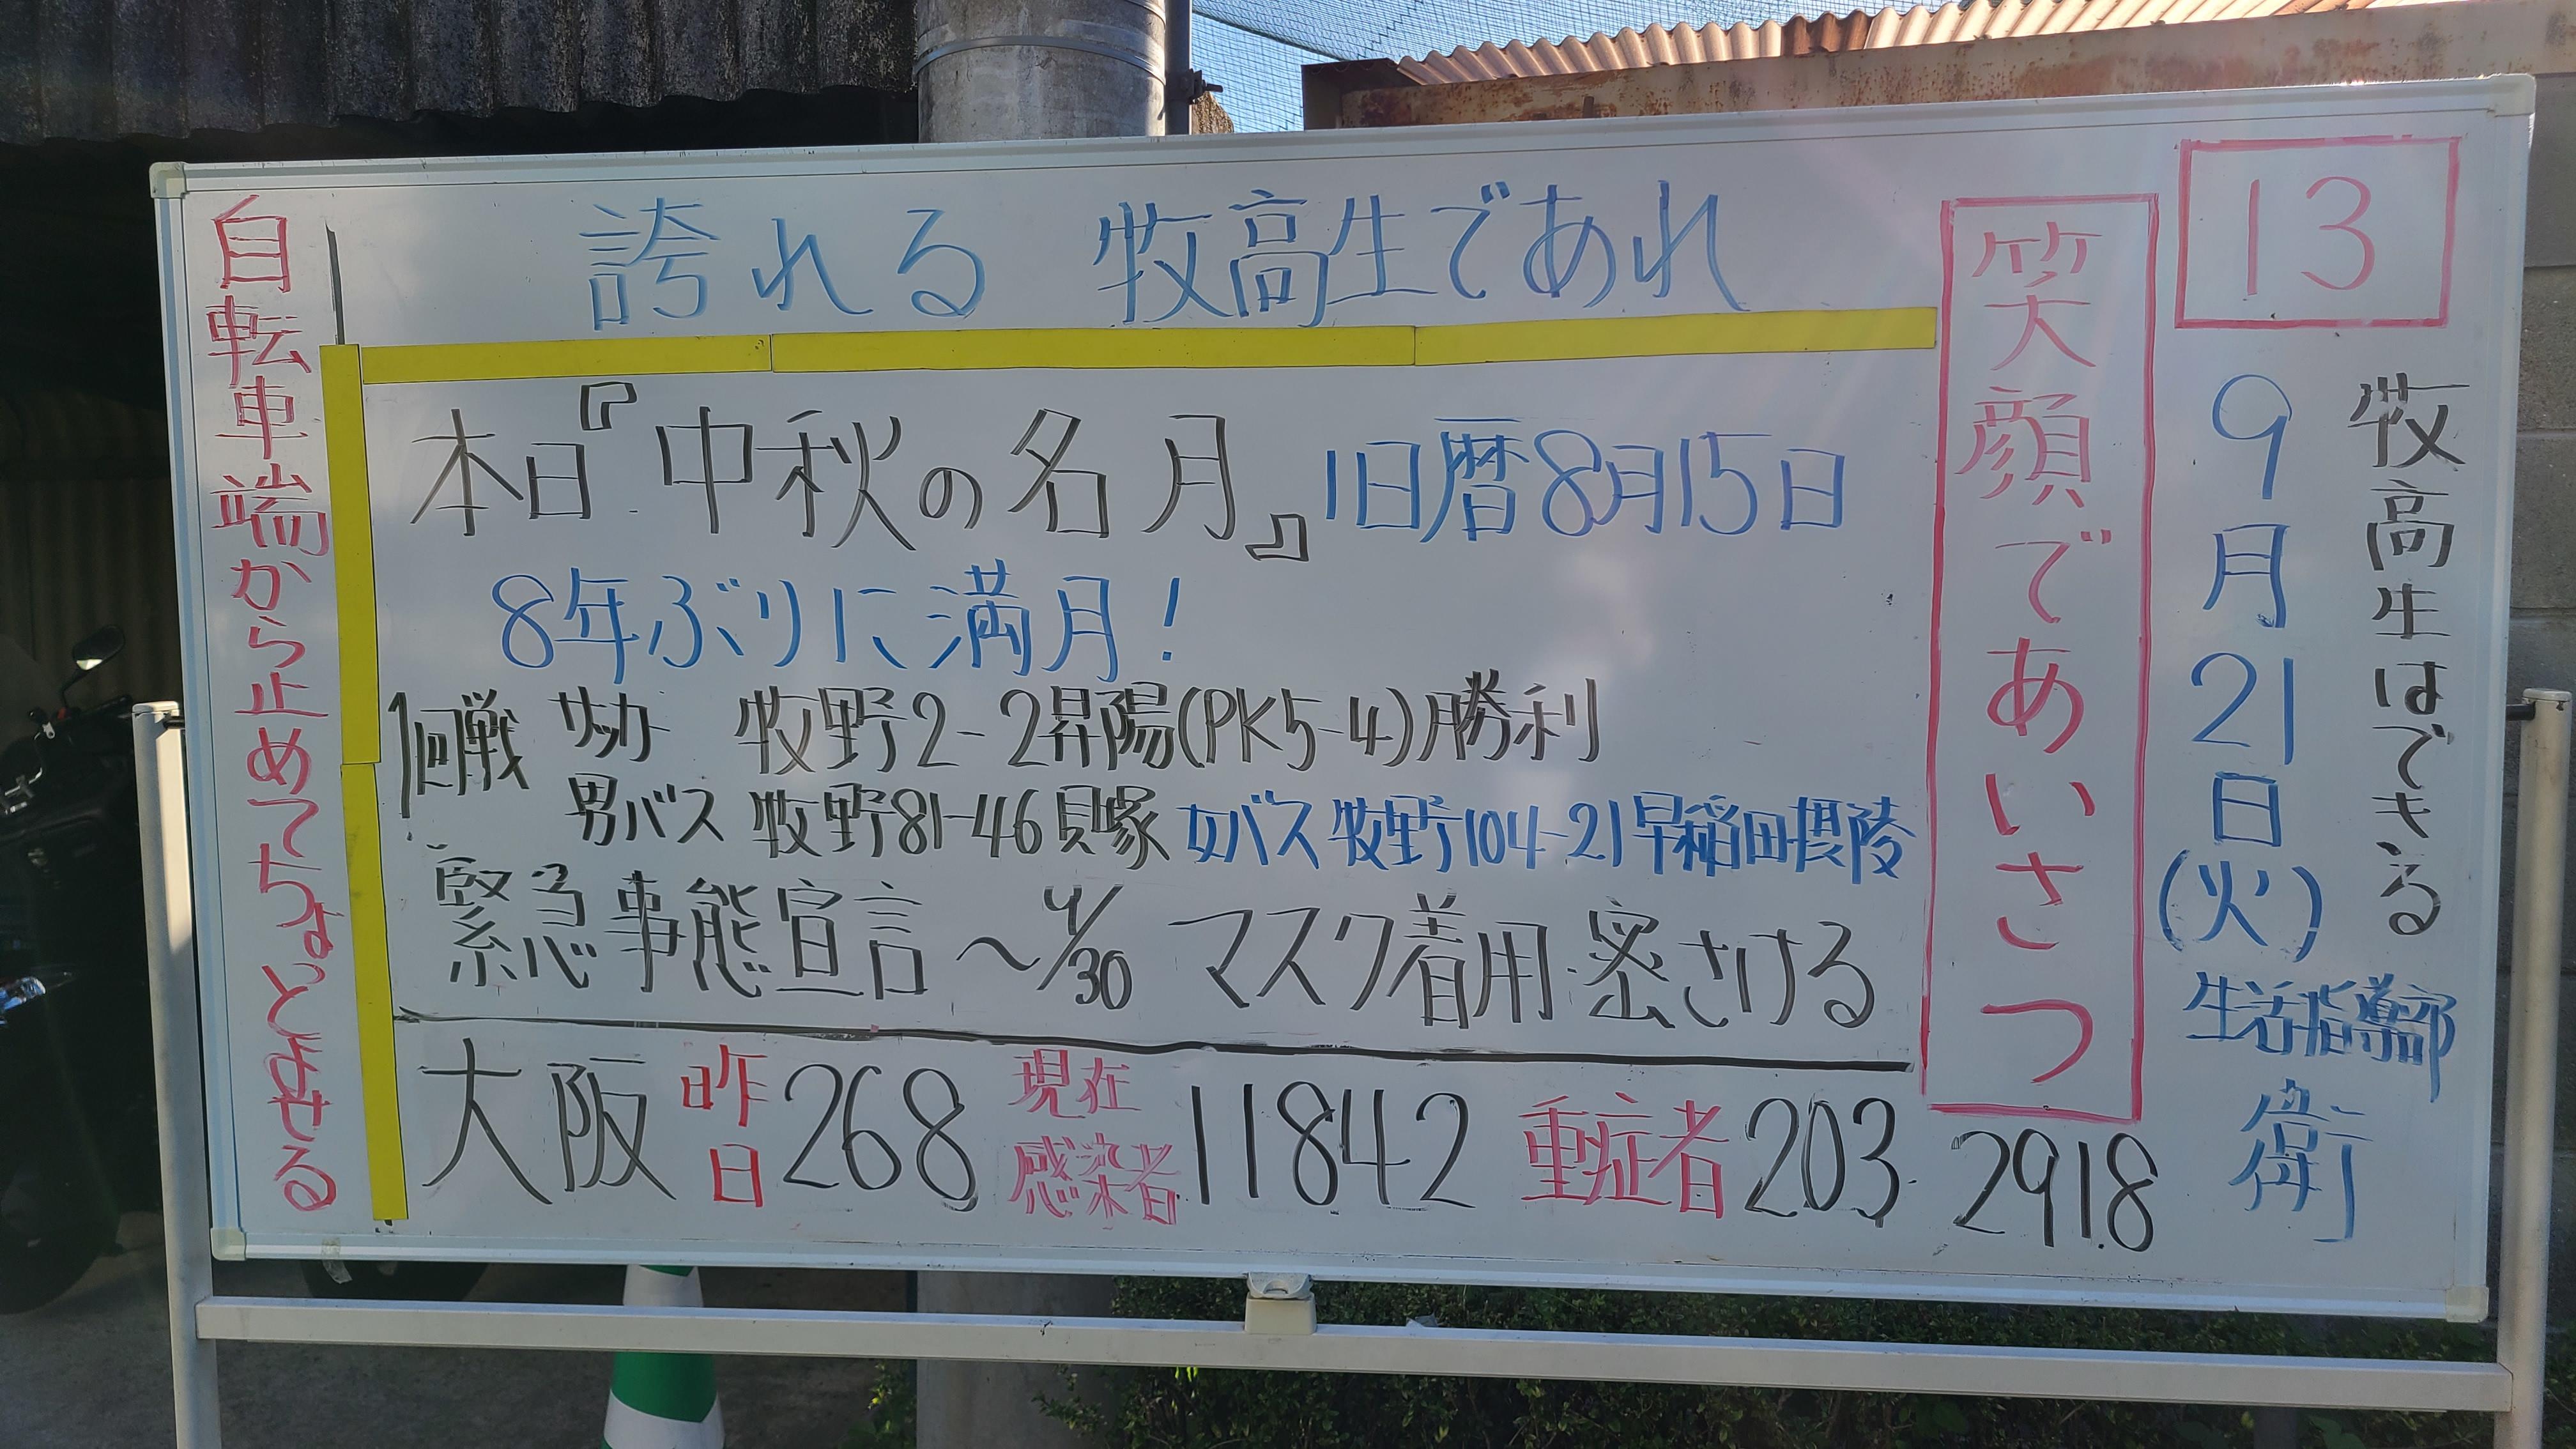 13
牧高生はできる
9月21日(火)
生活指導部
衛
笑顔であいさつ
誇れる 牧高生であれ
本日『中秋の名月』旧暦8月15日
8年ぶりに満月!
1回戦 サッカー 牧野2-2昇陽(PK5-4)勝利
男バス 牧野81-46貝塚 女バス 牧野104-21早稲田摂陵
緊急事態宣言~9/30 マスク着用・密さける
大阪 昨日268 現在感染者11842 重症者203
2918
自転車端から止めてちょっとよせる